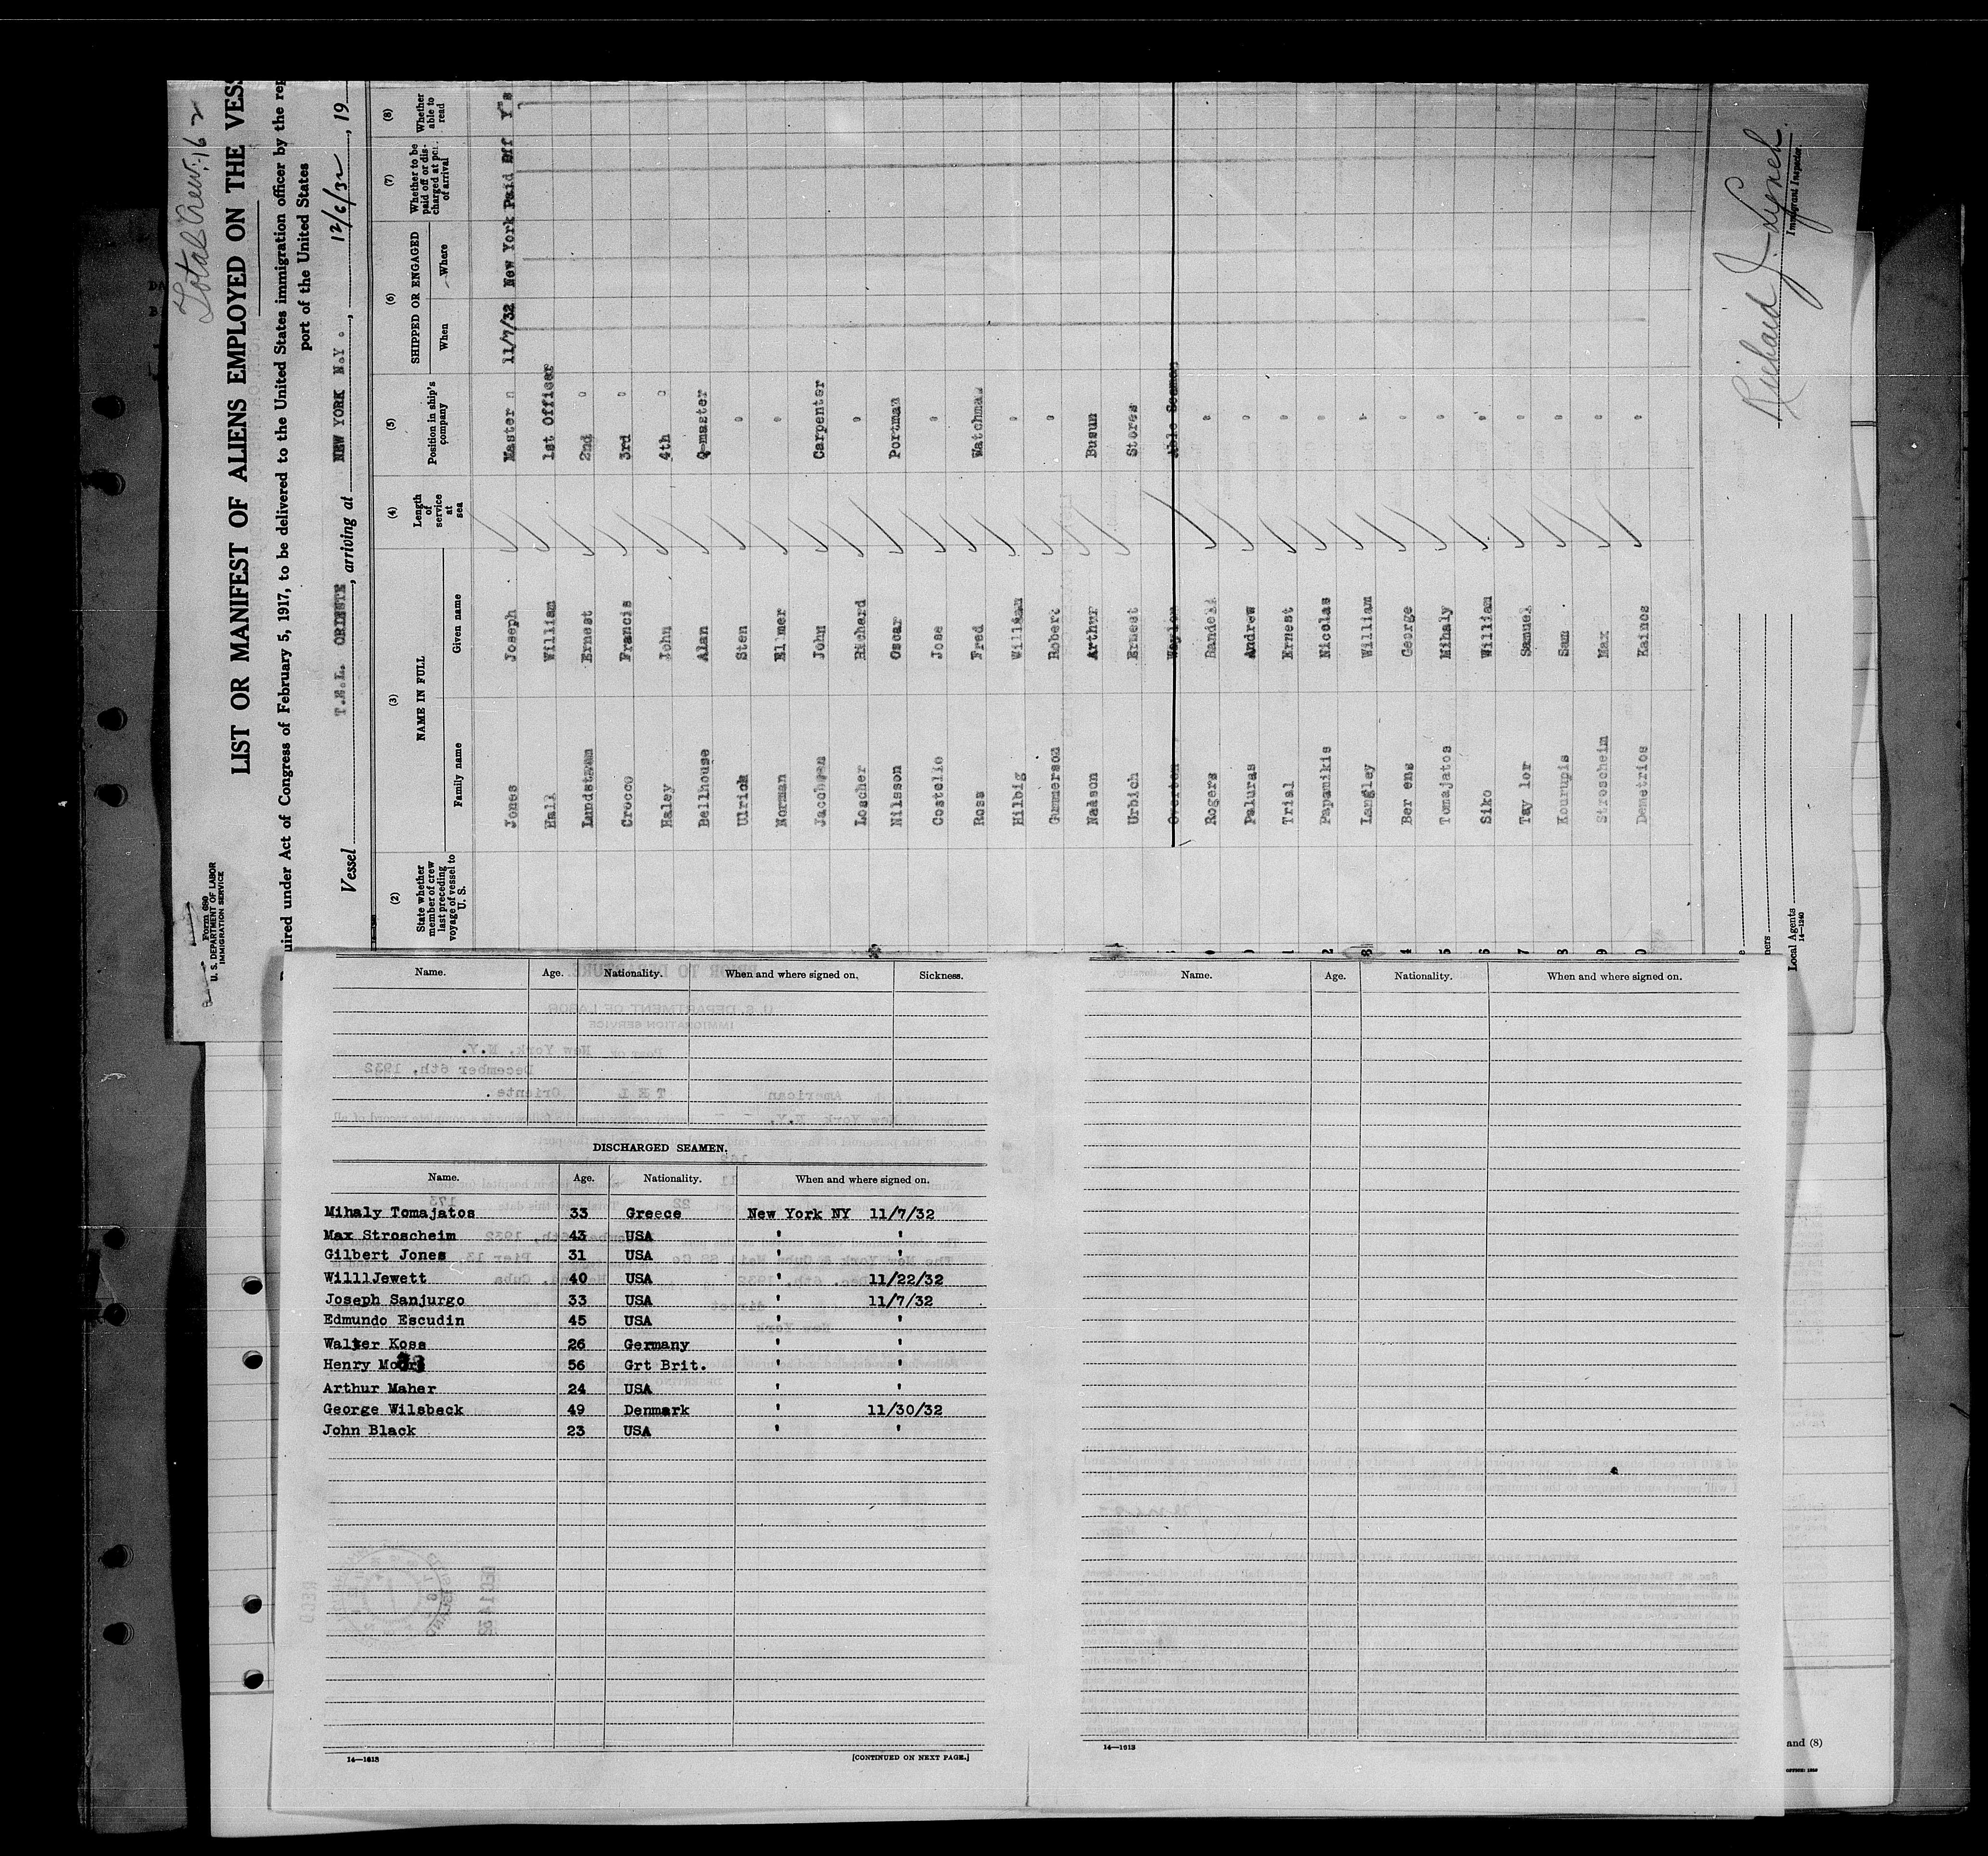 Total Crew, 162
Form 680
U. S. DEPARTMENT OF LABOR
IMMIGRATION SERVICE
LIST OR MANIFEST OF ALIENS EMPLOYED ON THE VESS
uired under Act of Congress of February 5, 1917, to be delivered to the United States immigration officer by the rep
port of the United States
Vessel T.E.L. ORIENTE, arriving at NEW YORK N.Y., 12/6/32, 19
(2) (3) (4) (5) (6) (7) (8)
State whether member of crew last preceding voyage of vessel to U. S.
NAME IN FULL
Family name Given name
Length of service at sea
Position in ship's company
SHIPPED OR ENGAGED
When Where
Whether to be paid off or discharged at port of arrival
Whether able to read
Jones Joseph Master 11/7/32 New York Paid Off Yes
Hall William 1st Officer
Lundstrem Ernest 2nd "
Crocco Francis 3rd "
Haley John 4th "
Bellhouse Alan Q-master
Ulrich Sten "
Norman Elmer "
Jacobsen John Carpenter
Loscher Richard "
Nilsson Oscar Portman
Costello Jose "
Ross Fred Watchman
Hilbig William "
Gummerson Robert "
Naason Arthur Busun
Urbich Ernest Stores
Overton Waylon Able Seaman
Rogers Randell "
Paluras Andrew "
Trial Ernest "
Papamikis Nicolas "
Langley William "
Ber eng George "
Tomajatos Mihaly "
Siko William "
Tay lor Samuel "
Kourupis Sam "
Stroscheim Max "
Demetrios Kainos "
Richard J. Lynch
Immigrant Inspector.
Local Agents
14—1240
Name. Age. Nationality. When and where signed on. Sickness.
DISCHARGED SEAMEN.
Name. Age. Nationality. When and where signed on.
Mihaly Tomajatos 33 Greece New York NY 11/7/32
Max Stroscheim 43 USA ' '
Gilbert Jones 31 USA ' '
WilllJewett 40 USA ' 11/22/32
Joseph Sanjurgo 33 USA ' 11/7/32
Edmundo Escudin 45 USA ' '
Walter Koss 26 Germany ' '
Henry Moore 56 Grt Brit. ' '
Arthur Maher 24 USA ' '
George Wilsbeck 49 Denmark ' 11/30/32
John Black 23 USA ' '
14—1613
[CONTINUED ON NEXT PAGE.]
Name. Age. Nationality. When and where signed on.
14—1613
and (8)